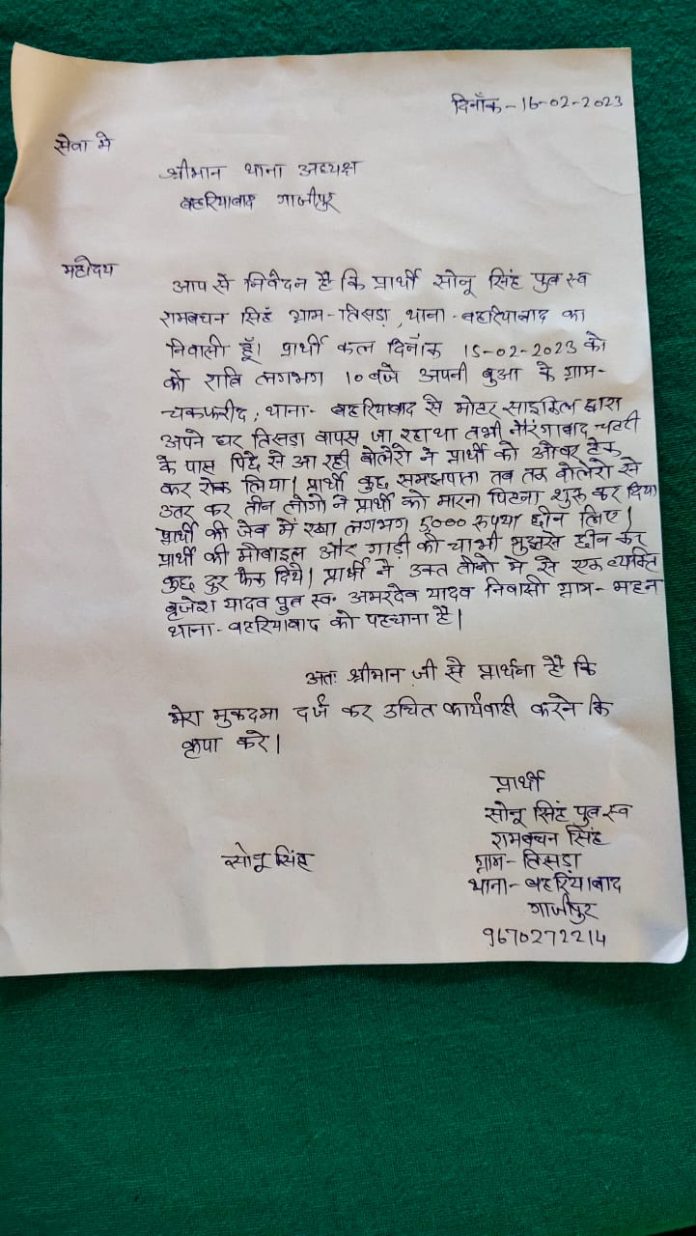 दिनाँक-16-02-2023
सेवा मे
श्रीमान थाना अध्यक्ष
बहरियाबाद गाजीपुर
महोदय
आप से निवेदन है कि प्रार्थी सोनू सिंह पुत्र स्व
रामबचन सिंह ग्राम-तिसड़ा, थाना-बहरियाबाद का
निवासी हूँ। प्रार्थी कल दिनाँक 15-02-2023 को
को रात्रि लगभग 10 बजे अपनी बुआ के ग्राम-
चकफरीद, थाना- बहरियाबाद से मोटर साइकिल द्वारा
अपने घर तिसड़ा वापस जा रहा था तभी नौरंगाबाद चट्टी
के पास पिछे से आ रही बोलेरो ने प्रार्थी को ओवर टेक
कर रोक लिया। प्रार्थी कुछ समझपाता तब तक बोलेरो से
उतर कर तीन लोगो ने प्रार्थी को मारना पिटना शुरू कर दिया
प्रार्थी की जेब में रखा लगभग 5000 रूपया छीन लिए।
प्रार्थी की मोबाइल और गाड़ी की चाभी मुझसे छीन कर
कुछ दुर फेंक दिये। प्रार्थी ने उक्त लोगो मे से एक व्यक्ति
बृजेश यादव पुत्र स्व. अमरदेव यादव निवासी ग्राम-
थाना- बहरियाबाद को पहचाना है।
अतः श्रीमान जी से प्रार्थना है कि
मेरा मुकदमा दर्ज कर उचित कार्यवाही करने कि
कृपा करे।
प्रार्थी
सोनू सिंह पुत्र स्व
रामबचन सिंह
सोनू सिंह
ग्राम- तिसड़ा
थाना- बहरियाबाद
गाजीपुर
9670272214